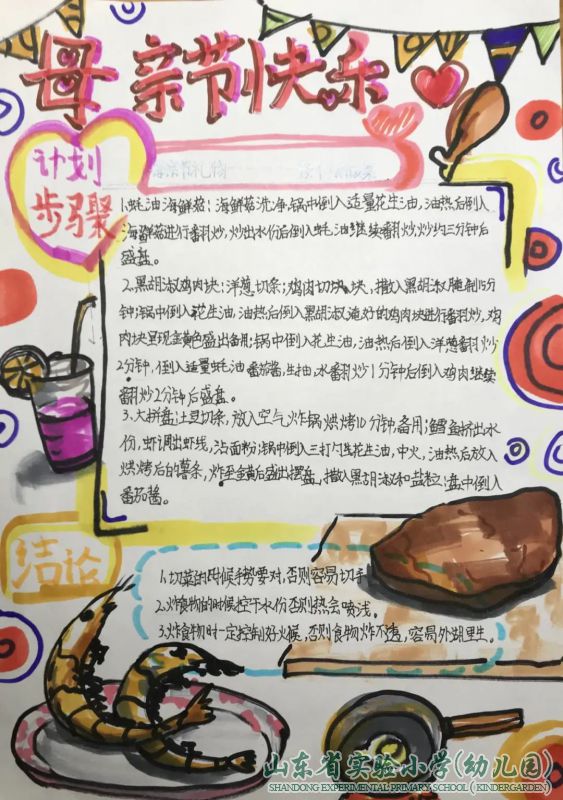 母亲节快乐
计划
步骤
1.蚝油海鲜菇：海鲜菇洗净，锅中倒入适量花生油，油热后倒入
海鲜菇进行翻炒，炒出水份后倒入蚝油继续翻炒炒约三分钟后
盛盘。
2.黑胡椒鸡肉块：洋葱切条；鸡肉切块，撒入黑胡椒腌制15分
钟；锅中倒入花生油，油热后倒入黑胡椒淹好的鸡肉块进行翻炒，鸡
肉块呈现金黄色盛出备用；锅中倒入花生油，油热后倒入洋葱翻炒
2分钟，倒入适量蚝油番茄酱，生抽，水翻炒1分钟后倒入鸡肉继续
翻炒2分钟后盛盘。
3.大拼盘：土豆切条，放入空气炸锅烘烤10分钟，备用；鳕鱼挤出水
份，虾调出虾线，沾面粉；锅中倒入三打勺花生油，中火，油热后放入
烘烤后的薯条，炸至金黄后盛出摆盘，撒入黑胡椒和盐粒；盘中倒入
番茄酱。
结论
1.切菜的时候手势要对，否则容易切手
2.炸食物的时候控干水份否则热会喷浅。
3.炸食物时一定控制好火候，否则食物炸不透，容易外糊里生。
山东省实验小学(幼儿园)
SHANDONG EXPERIMENTAL PRIMARY SCHOOL ( KINDERGARDEN)